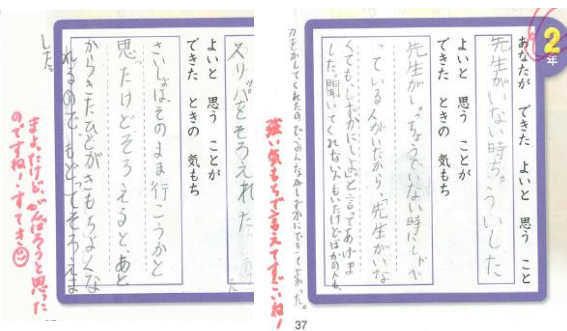 2年
あなたが できた よいと 思う こと
先生がいない時ちゅういした
よいと 思う ことが
できた ときの 気もち
先生がしゅっちょうでいない時にしゃべ
っている人がいたから、先生がいな
くても、しずかにしよと言ってあげま
した。聞いてくれない人もいたけどほかの人も、
力をかしてくれたので、みんながしずかにできてよかった。
強い気もちで言えてすごいね!
37
スリッパをそろえれた
よいと 思う ことが
できた ときの 気もち
さいしょは、そのまま行こうかと
思ったけどそろえると、あと
からきた人がきもちよくな
れるので、もどってそろえま
した。
まよったけど、がんばろうと思った
のですね!すてき